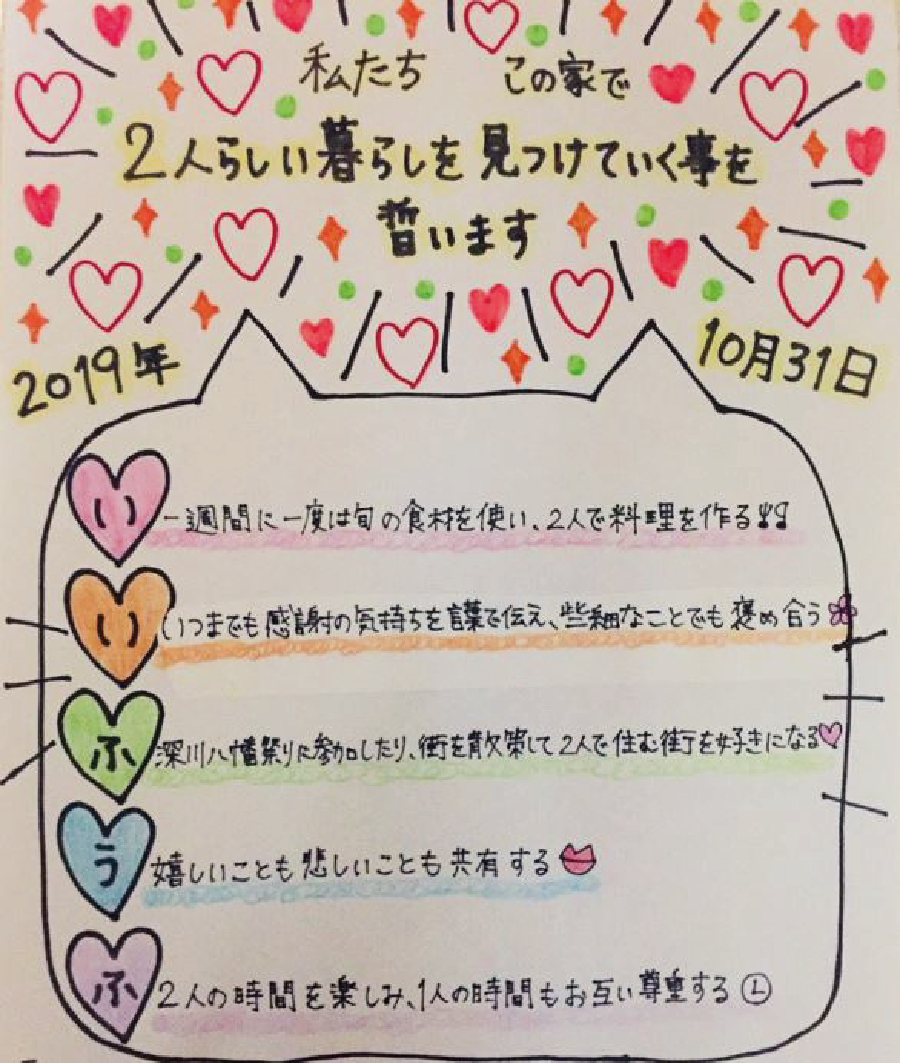 私たち この家で
2人らしい暮らしを見つけていく事を
誓います
2019年 10月31日
い 一週間に一度は旬の食材を使い、2人で料理を作る
い いつまでも感謝の気持ちを言葉で伝え、些細なことでも褒め合う
ふ 深川八幡祭りに参加したり、街を散策して2人で住む街を好きになる
う 嬉しいことも悲しいことも共有する
ふ 2人の時間を楽しみ、1人の時間もお互い尊重する